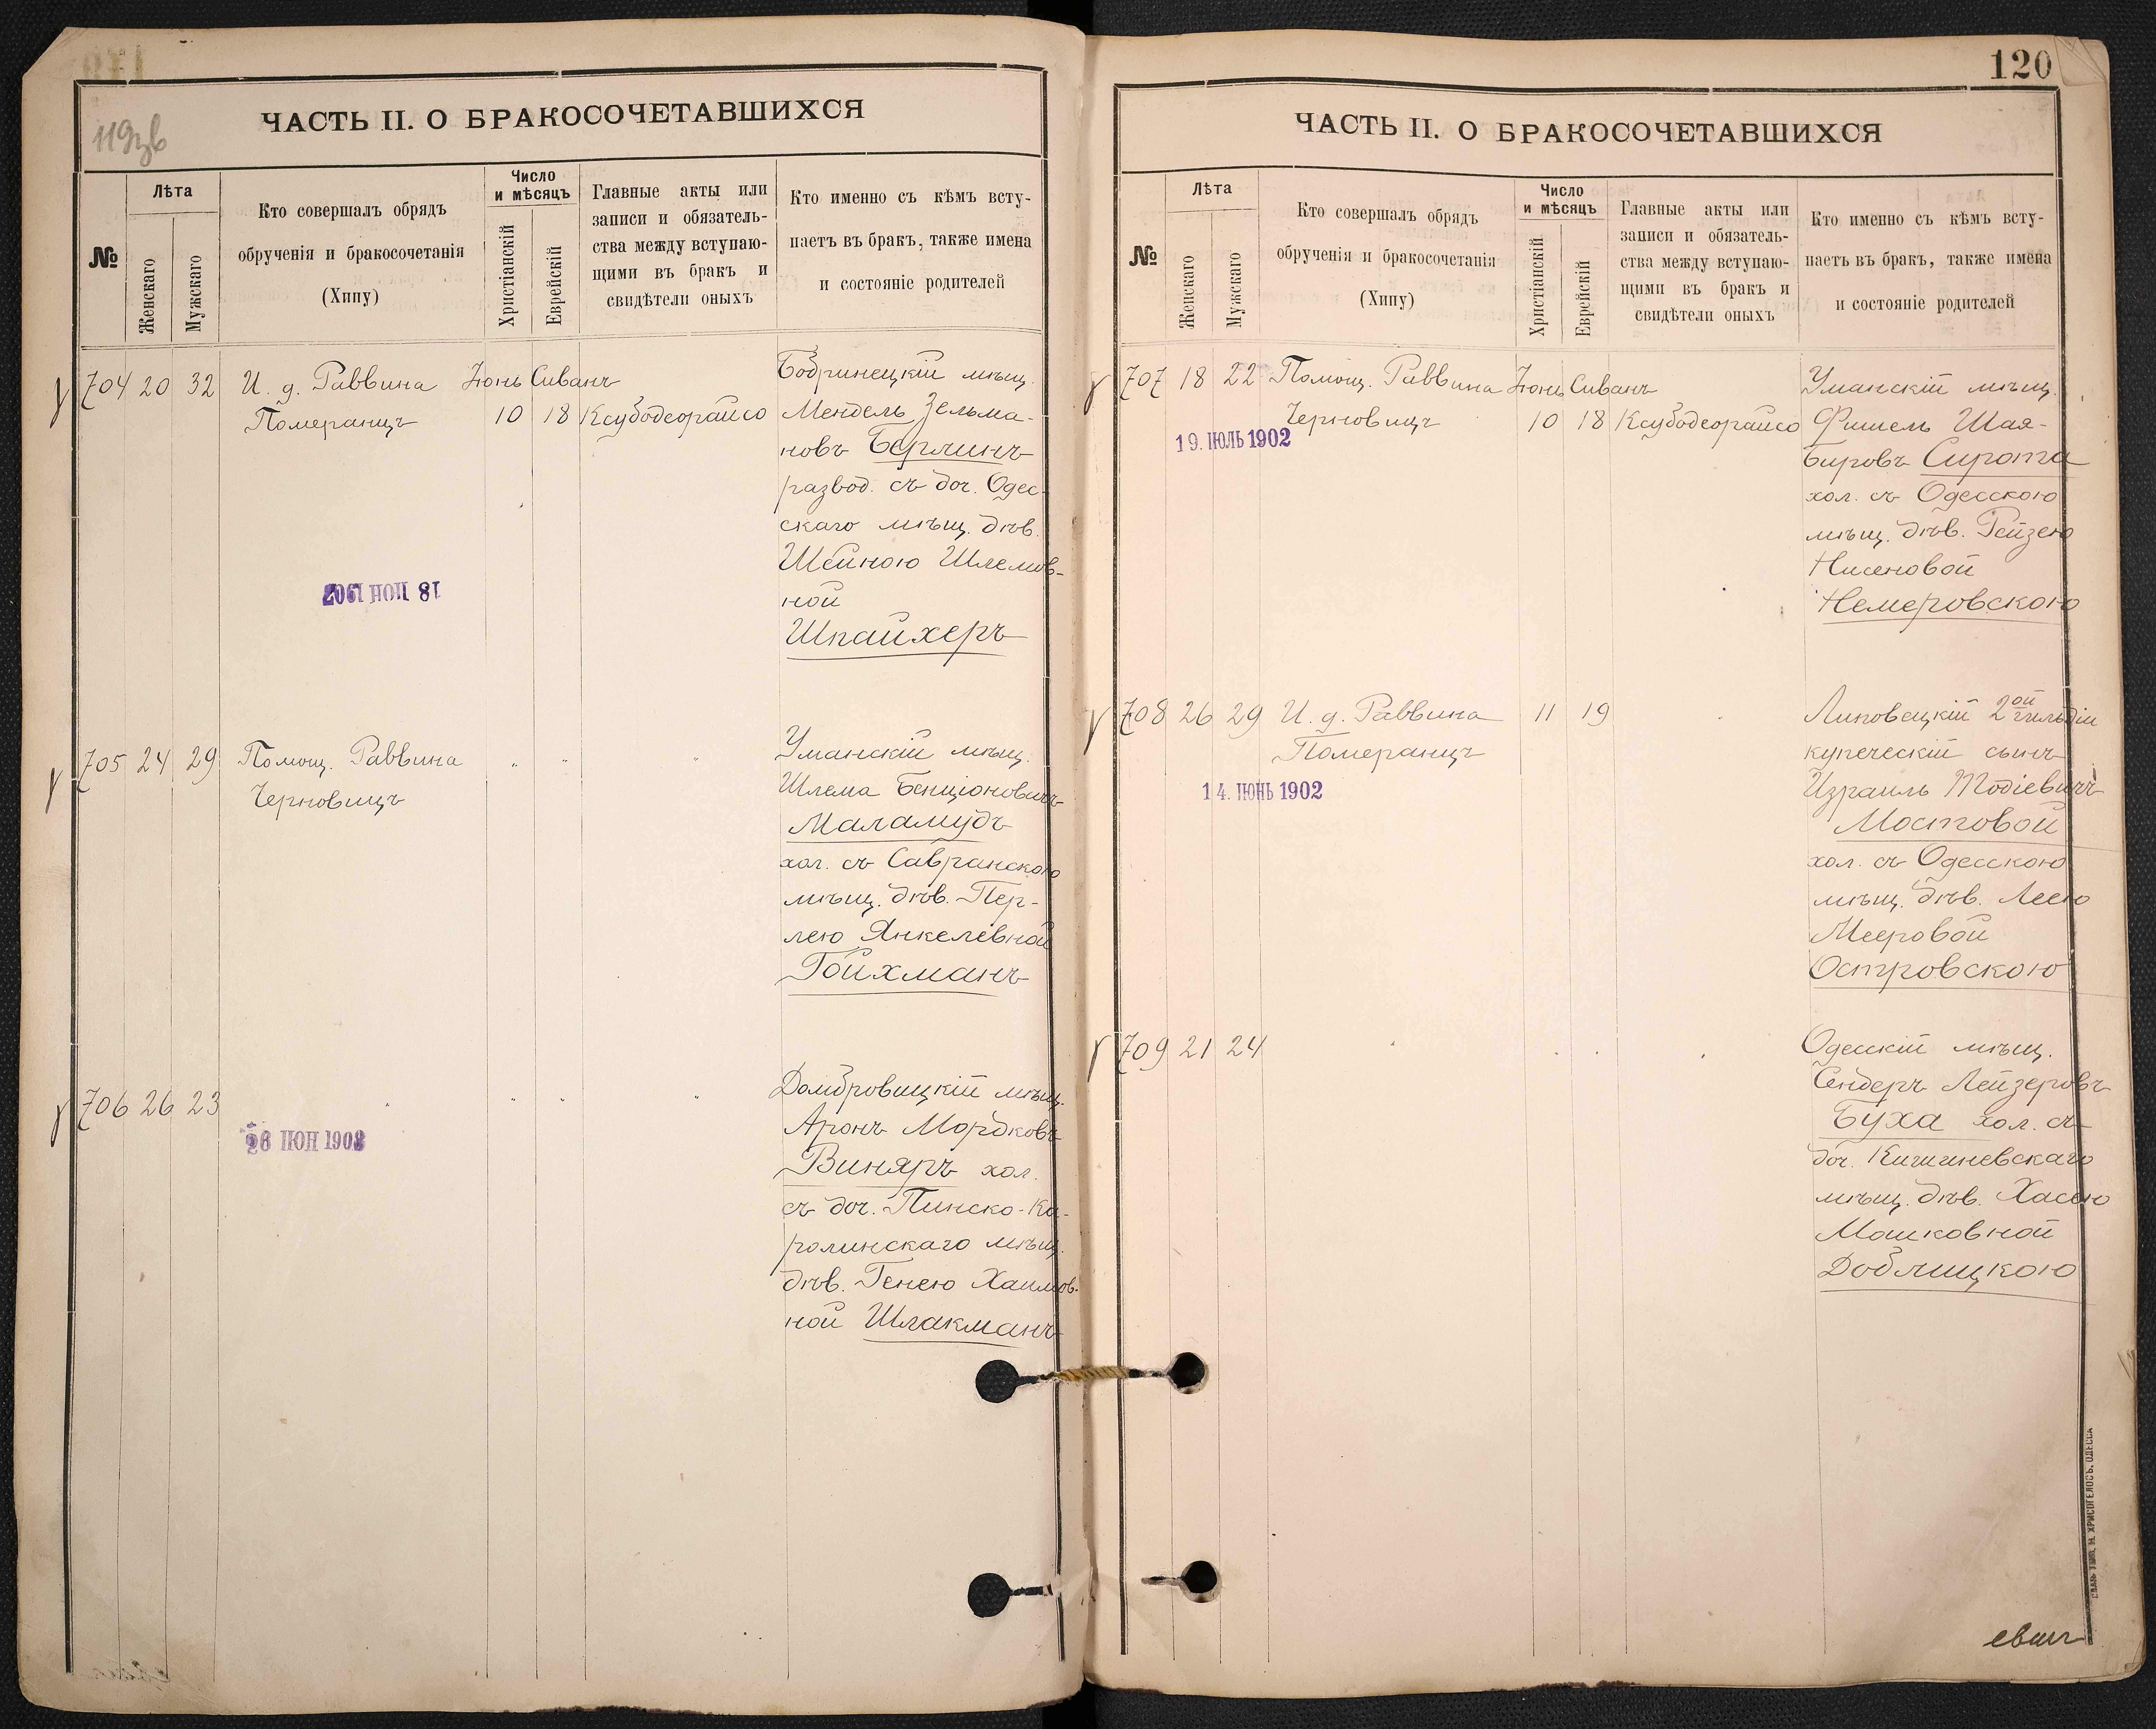 119зв
ЧАСТЬ II. О БРАКОСОЧЕТАВШИХСЯ
№
Лѣта
Женскаго
Мужскаго
Кто совершалъ обрядъ
обрученія и бракосочетанія
(Хипу)
Число
и мѣсяцъ
Христіанскій
Еврейскій
Главные акты или
записи и обязатель-
ства между вступаю-
щими въ бракъ и
свидѣтели оныхъ
Кто именно съ кѣмъ всту-
паетъ въ бракъ, также имена
и состояніе родителей
704 20 32 И. д. Раввина Іюнь Сиванъ
Померанцъ 10 18 Ксубодеорайсо
Бобринецкій мѣщ.
Мендель Зельма-
новъ Берлинъ
развод. съ доч. Одес-
скаго мѣщ. дѣв.
Шейною Шлемов-
ной
Шпайхеръ
18 ІЮН 1902
705 24 29 Помощ. Раввина " " "
Черновицъ
Уманскій мѣщ.
Шлема Бенціоновичъ
Маламудъ
хол. съ Савранскою
мѣщ. дѣв. Пер-
лею Янкелевной
Гойхманъ
706 26 23 " " " "
26 ІЮН 1902
Домбровицкій мѣщ.
Аронъ Мордковъ
Виняръ хол.
съ доч. Пинско-Ка-
ролинскаго мѣщ.
дѣв. Генею Хаимов-
ной Шлакманъ
120
ЧАСТЬ II. О БРАКОСОЧЕТАВШИХСЯ
№
Лѣта
Женскаго
Мужскаго
Кто совершалъ обрядъ
обрученія и бракосочетанія
(Хипу)
Число
и мѣсяцъ
Христіанскій
Еврейскій
Главные акты или
записи и обязатель-
ства между вступаю-
щими въ бракъ и
свидѣтели оныхъ
Кто именно съ кѣмъ всту-
паетъ въ бракъ, также имена
и состояніе родителей
707 18 22 Помощ. Раввина Іюнь Сиванъ
Черновицъ 10 18 Ксубодеорайсо
19. ІЮЛЬ 1902
Уманскій мѣщ.
Фишель Шая-
Бировъ Сирота
хол. съ Одесскою
мѣщ. дѣв. Рейзею
Нисеновой
Немеровскою
708 26 29 И. д. Раввина 11 19
Померанцъ
14. ІЮНЬ 1902
Липовецкій 2ой гильдіи
купеческій сынъ
Израиль Тодіевичъ
Мостовой
хол. съ Одесскою
мѣщ. дѣв. Леею
Мееровой
Островскою
709 21 24
Одесскій мѣщ.
Сендеръ Лейзеровъ
Буха хол. съ
доч. Кишиневскаго
мѣщ. дѣв. Хасею
Мошковной
Доблицкою
СЛАВ. ТИПО. Н. ХРИСОГЕЛОСЪ. ОДЕССА